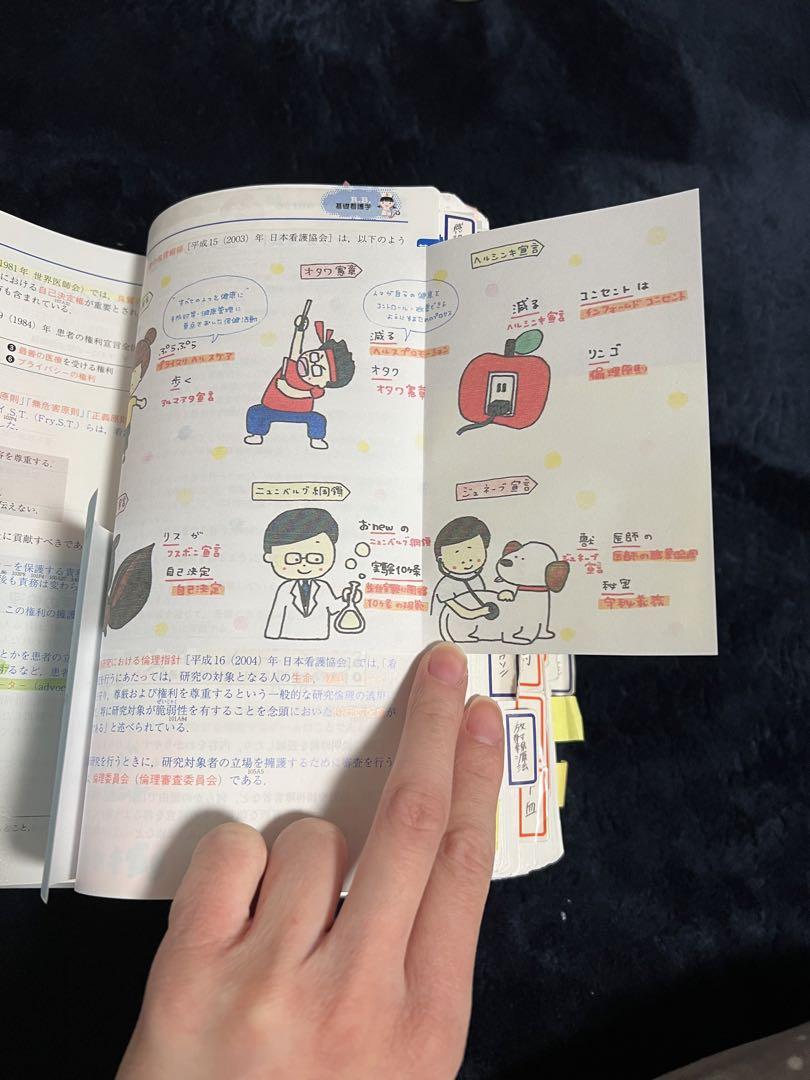 B.B.
基礎看護学
[平成15(2003)年 日本看護協会]は,以下のよう
1981年 世界医師会)では,良質
における自己決定権が重要とされ
も含まれている.
(1984)年 患者の権利宣言全
❸最善の医療を受ける権利
❻プライバシーの権利
原則」「無危害原則」「正義原則
S.T.(Fry,S.T.)らは,看
た.
を尊重する.
伝えない.
に貢献すべきであ
を保護する責
も責務は変わら
この権利の擁護
とかを患者の立
するなど,患者
ーター(advoc
オタワ憲章
すべての人々に健康に
予防対策・健康管理に
重点をおいた保健活動
ぷらぷら
プライマリヘルスケア
歩く
アルマアタ宣言
人々が自らの健康を
コントロール・改善できる
ようにするためのプロセス
減る
ヘルスプロモーション
オタク
オタワ憲章
ヘルシンキ宣言
減る
ヘルシンキ宣言
コンセントは
インフォームド コンセント
リンゴ
倫理原則
リスが
リスボン宣言
自己決定
自己決定
ニュンベルグ綱領
おnewの
ニュンベルグ綱領
実験10ヶ条
10ヶ条の規範
ジュネーブ宣言
獣 医師の
ジュネーブ宣言
医師の職業倫理
秘密
守秘義務
研究における倫理指針[平成16(2004)年 日本看護協会]では,「看
を行うにあたっては,研究の対象となる人の生命,
り,尊厳および権利を尊重するという一般的な研究倫理の
特に研究対象が脆弱性を有することを念頭においた
る」と述べられている.
101A84
研究を行うときに,研究対象者の立場を擁護するために審査を行う
倫理委員会(倫理審査委員会)である.
105A5
放射線療法